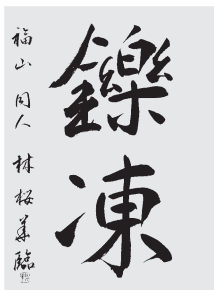 鑠凍
福山 同人 林桜華臨